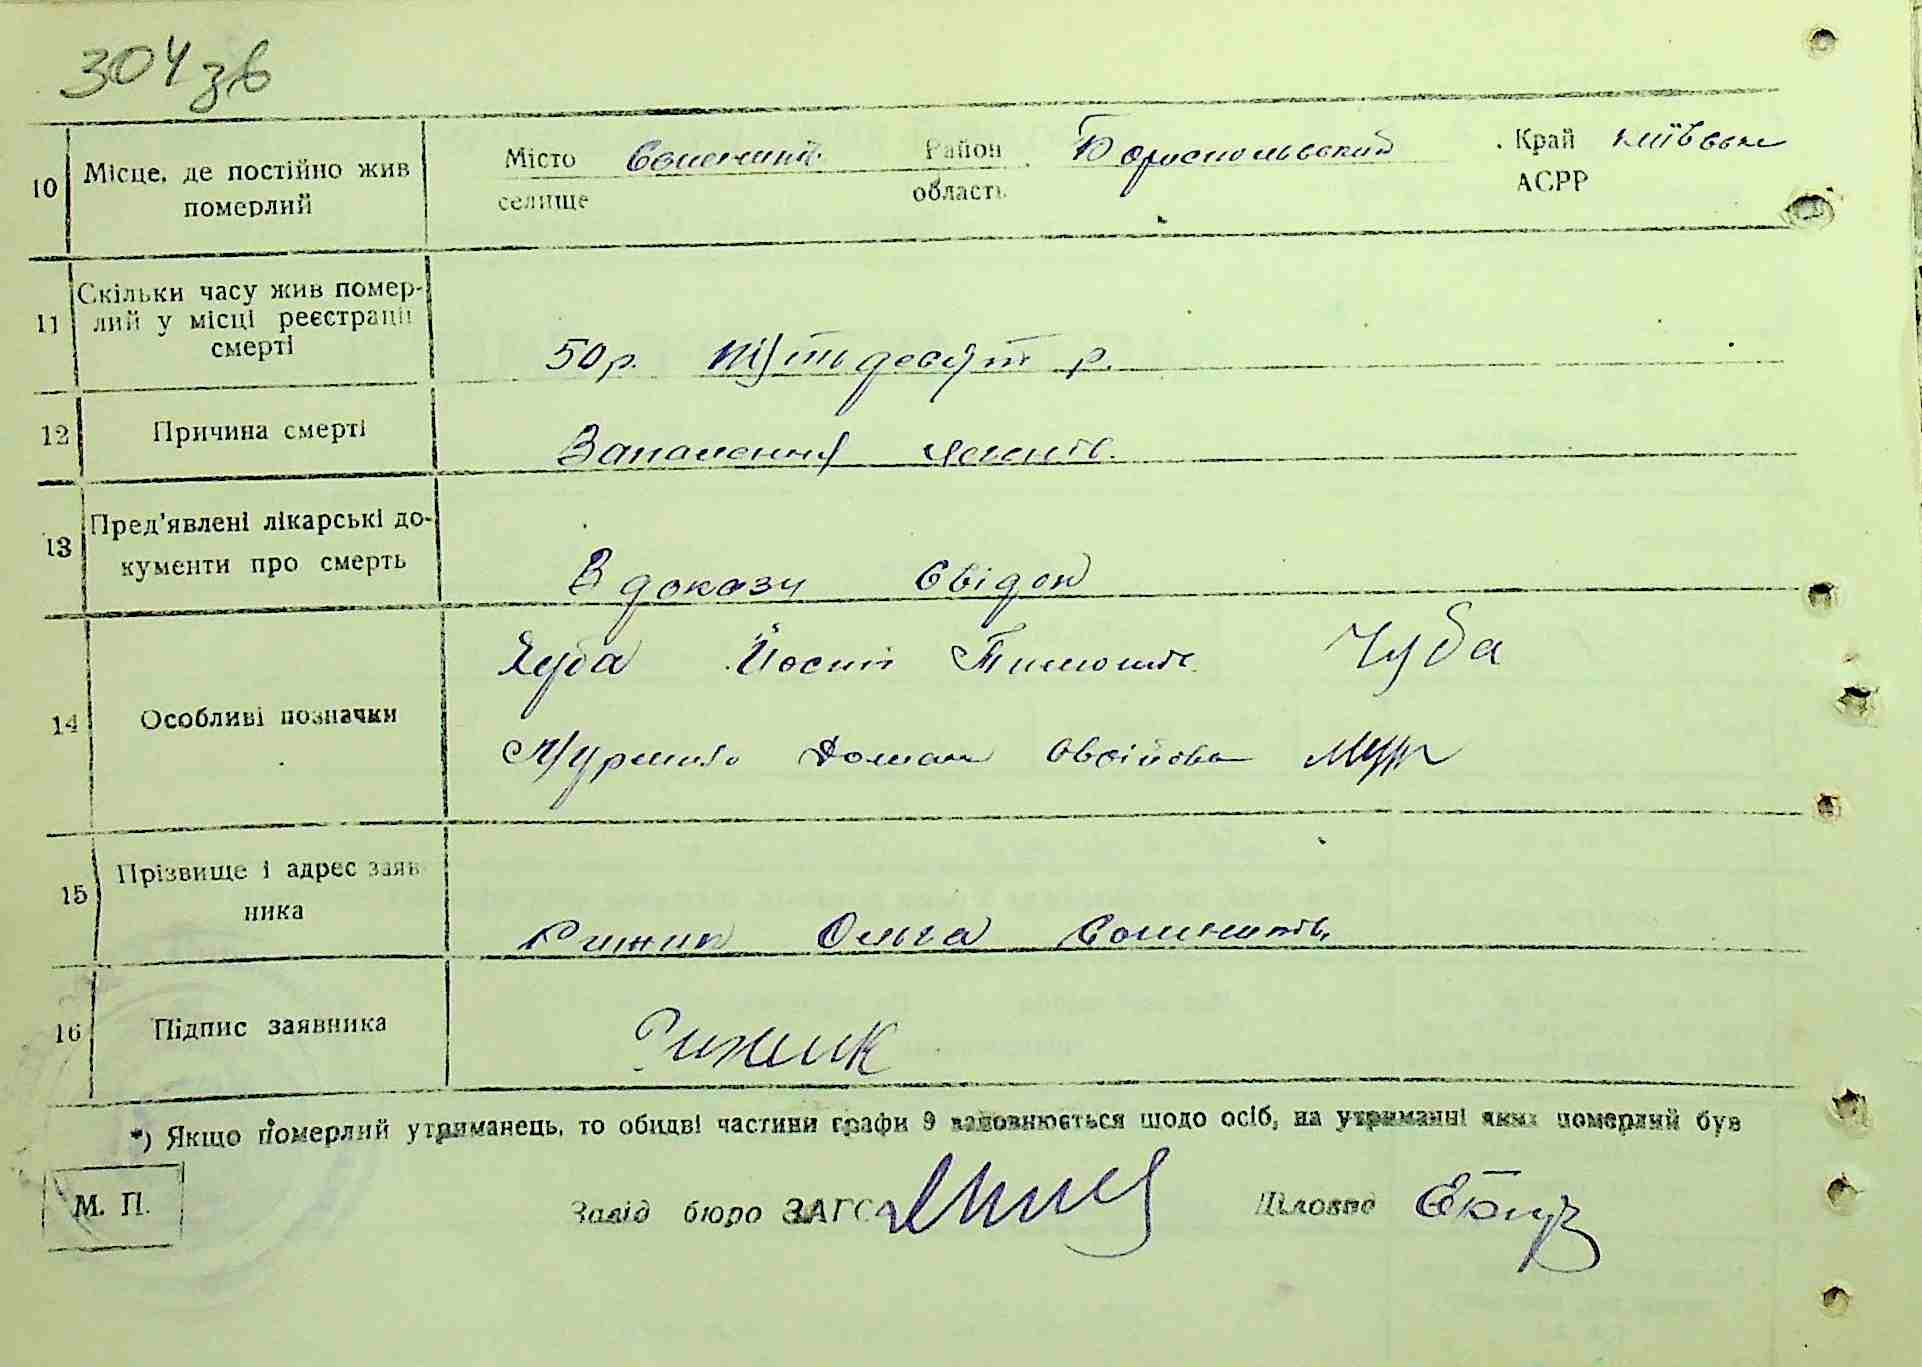 304 зв
10 Місце, де постійно жив померлий Місто селище Район область Бориспольвский Край АСРР київськ
11 Скільки часу жив померлий у місці реєстрації смерті
50 р. пятьдесят р.
12 Причина смерті Запалення легенів.
13 Пред'явлені лікарські документи про смерть В доказу свідок
14 Особливі позначки
Чуба Йосип Тимошів. Чуба
Домаха Овсійовна Мур
15 Прізвище і адрес заявника
Рижик Ольга
16 Підпис заявника Рижик
*) Якщо померлий утриманець, то обидві частини графи 9 заповнюється щодо осіб, на утриманні яких померлий був
М. П. Завід бюро ЗАГСА Діловод